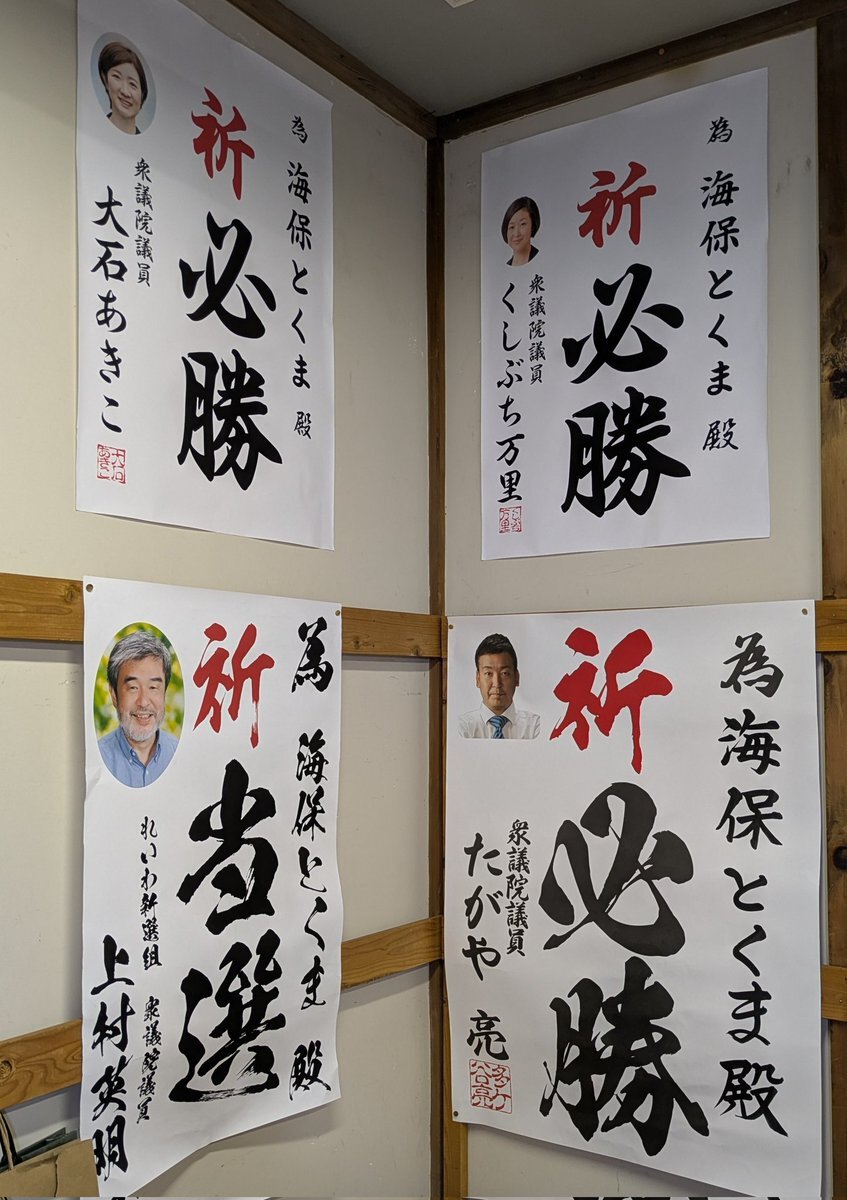 為 海保とくま 殿
祈
必勝
衆議院議員
大石あきこ
大石
あきこ
為 海保とくま 殿
祈
必勝
衆議院議員
くしぶち万里
くしぶち
万里
為 海保とくま 殿
祈
当選
れいわ新選組 衆議院議員
上村英明
為 海保とくま 殿
祈
必勝
衆議院議員
たがや 亮
多ケ
谷亮